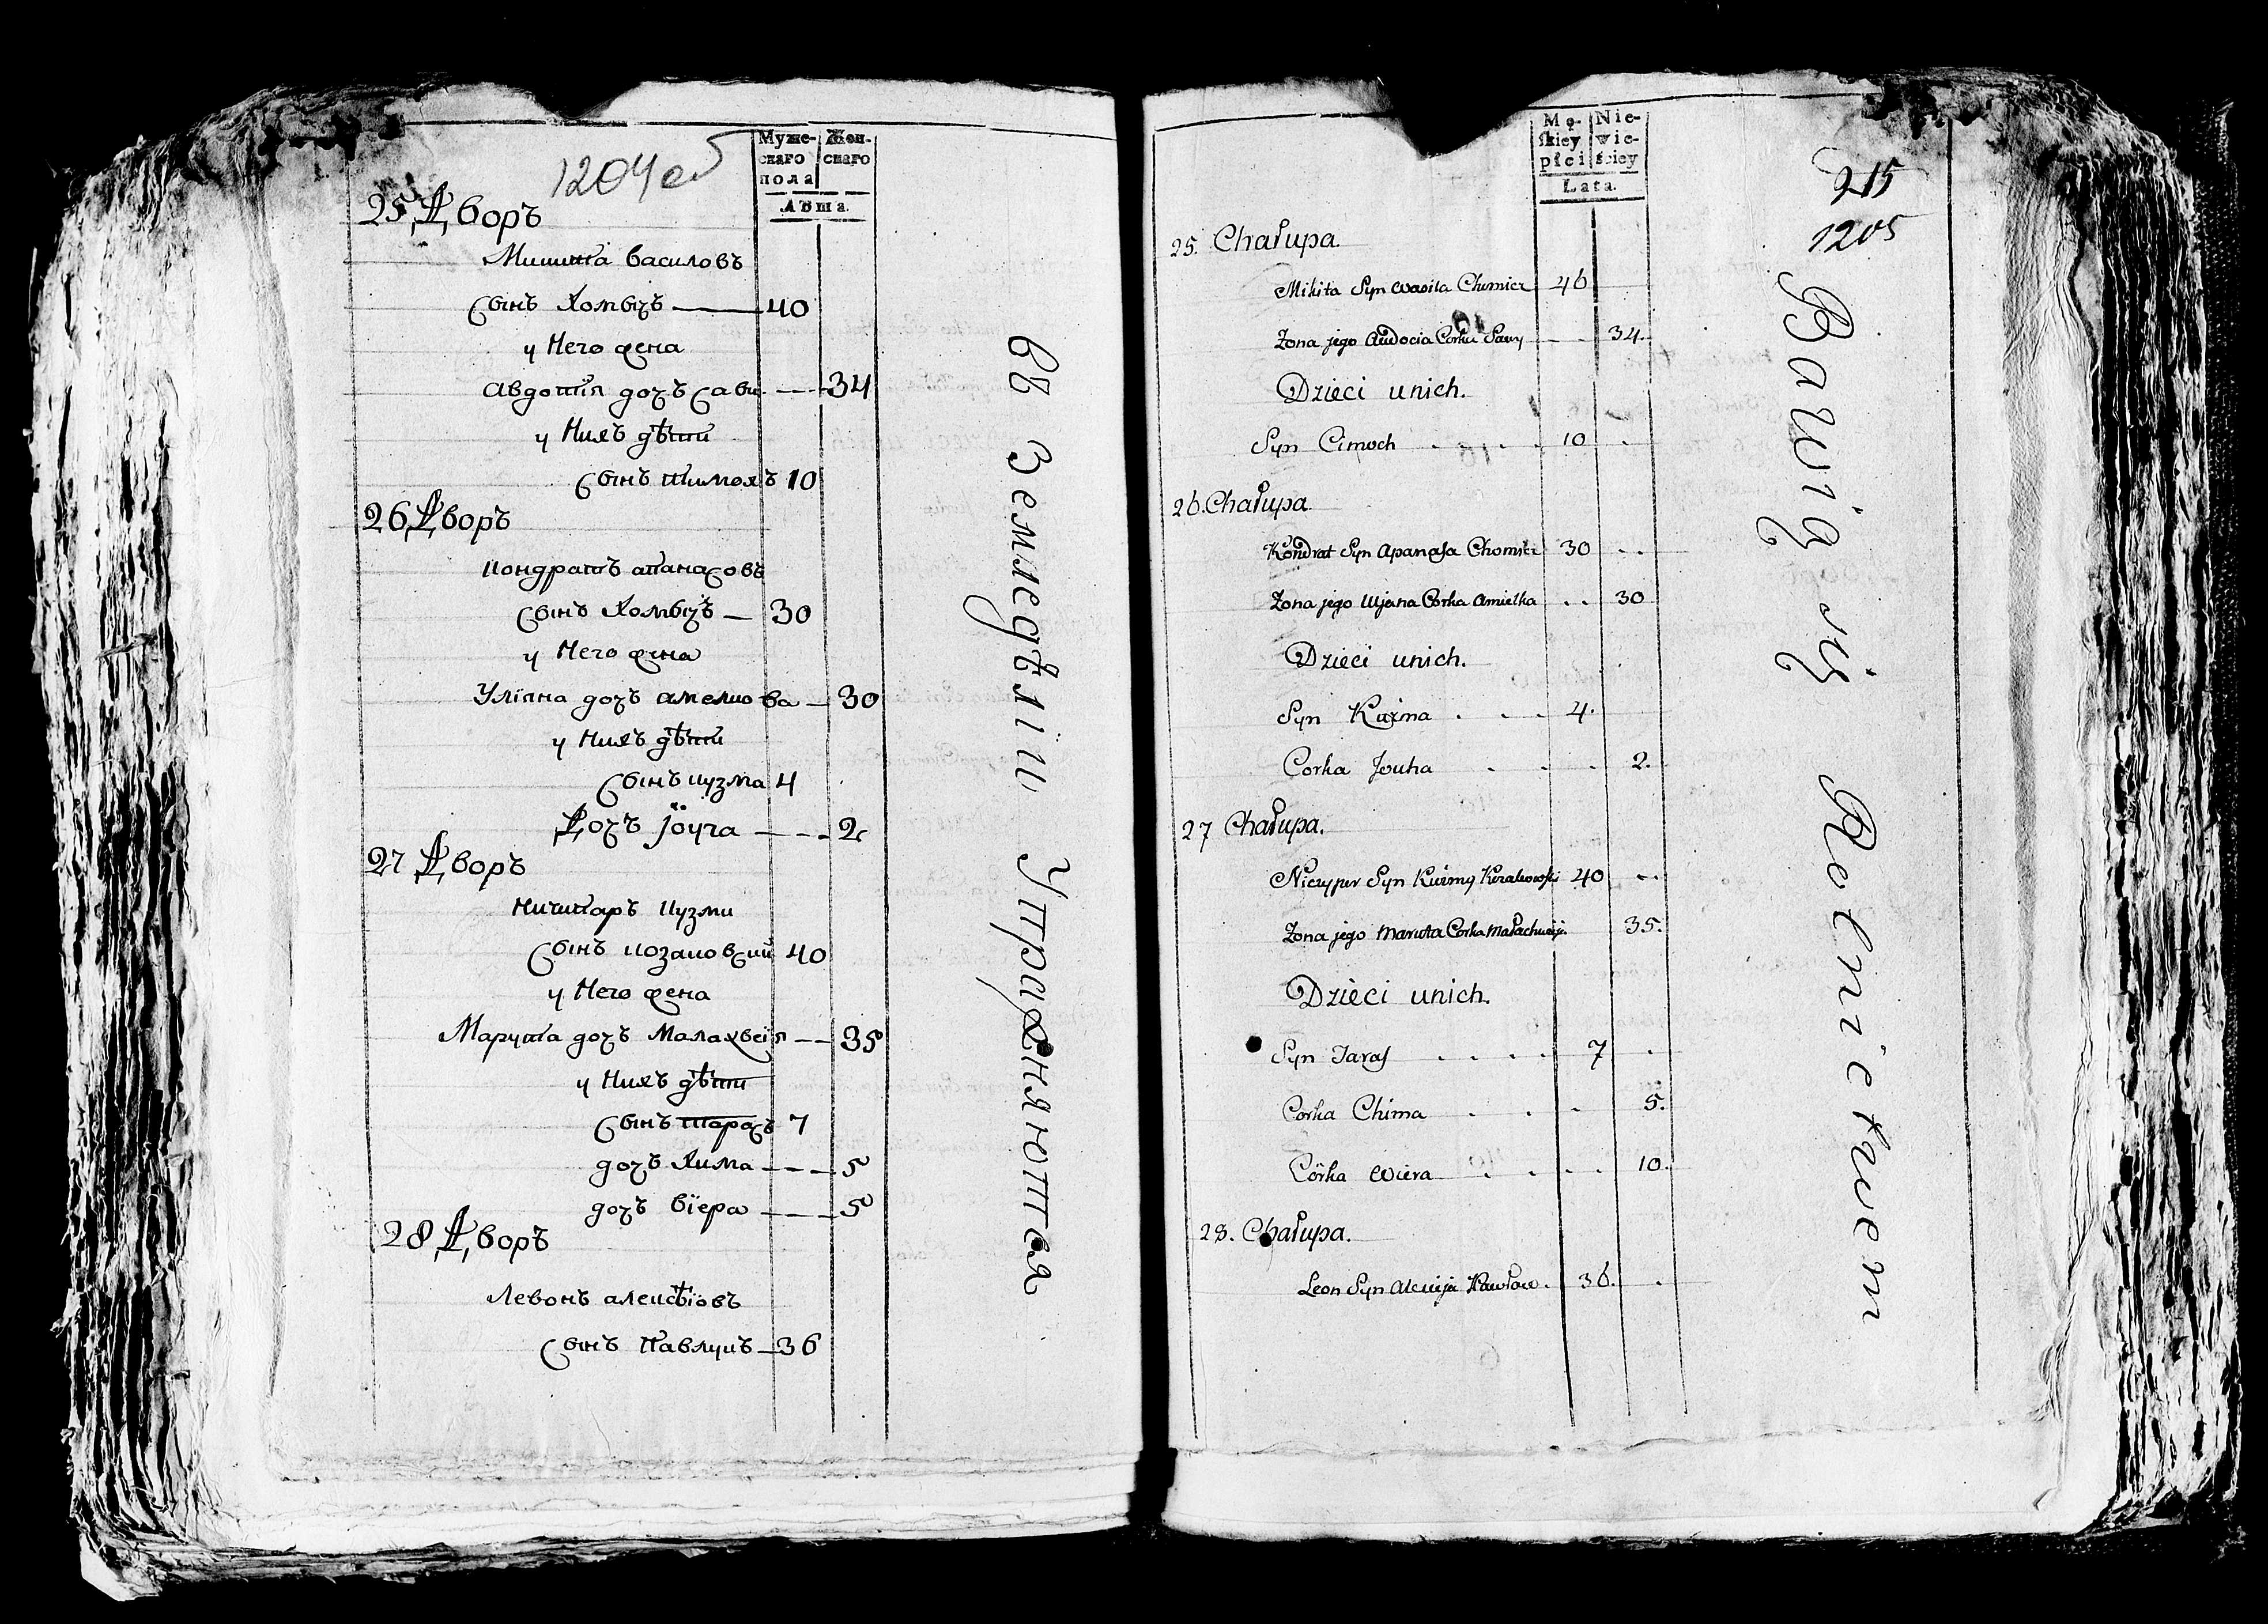 1204 об
Муже-
скаго
пола
Жен-
скаго
Лѣта.
25 Дворъ
Микита василовъ
сынъ Хомычъ — 40
у Него жена
Авдотія дочъ савы — 34
у Нихъ дѣти
сынъ тимохъ 10
26 Дворъ
кондратъ апанасовъ
сынъ Хомычъ — 30
у Него жена
Уліяна дочъ амелкова — 30
у Нихъ дѣти
сынъ кузма 4
Дочъ їоуга — 2
27 Дворъ
Ничипаръ кузми
сынъ козаковский 40
у Него жена
Марута дочъ Малахвеія — 35
у Нихъ дѣти
сынъ тарасъ 7
дочъ Хима — 5
дочъ вїера — 5
28 Дворъ
Левонъ алексѣіовъ
сынъ Павлукъ — 36
въ Земледѣліи Упражняются
Mę-
skiey
płci
Nie-
wie-
ściey
Lata.
215
1205
25. Chałupa.
Mikita Syn Wasila Chomicz 46
Zona jego Audocia Corka Sawy - - 34.
Dzieci unich.
Syn Cimoch . . . . 10 .
26. Chałupa.
Kondrat Syn Apanasa Chomicz 30 . .
Zona jego Uljana Corka Amielka . . 30
Dzieci unich.
Syn Kuźma . . . 4.
Corka Jouha . . . 2.
27 Chałupa.
Niczyper Syn Kuźmy Kozakowski 40 . .
Zona jego Maruta Corka Małachwieja 35.
Dzieci unich.
Syn Taras . . . . 7 .
Corka Chima . . . 5.
Córka Wiera . . . . 10.
28. Chałupa.
Leon Syn Alexieja Pawłow. 36. .
Bawią się Rolnictwem